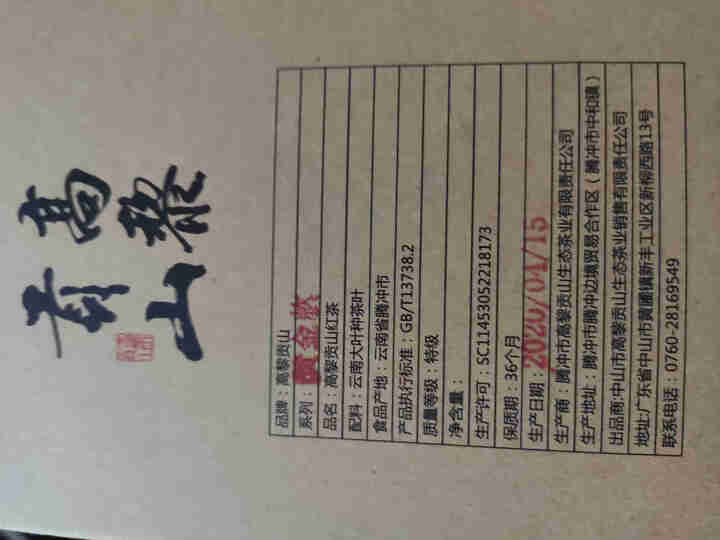 高黎
贡山
品牌：高黎贡山
系列：黄金芽
品名：高黎贡山红茶
配料：云南大叶种茶叶
食品产地：云南省腾冲市
产品执行标准：GB/T13738.2
质量等级：特级
净含量：
生产许可：SC11453052218173
保质期：36个月
生产日期：2020/04/15
生产商：腾冲市高黎贡山生态茶业有限责任公司
生产地址：腾冲市腾冲边境贸易合作区（腾冲市中和镇）
出品商:中山市高黎贡山生态茶业销售有限责任公司
地址:广东省中山市黄圃镇新丰工业区新柳西路13号
联系电话：0760-28169549